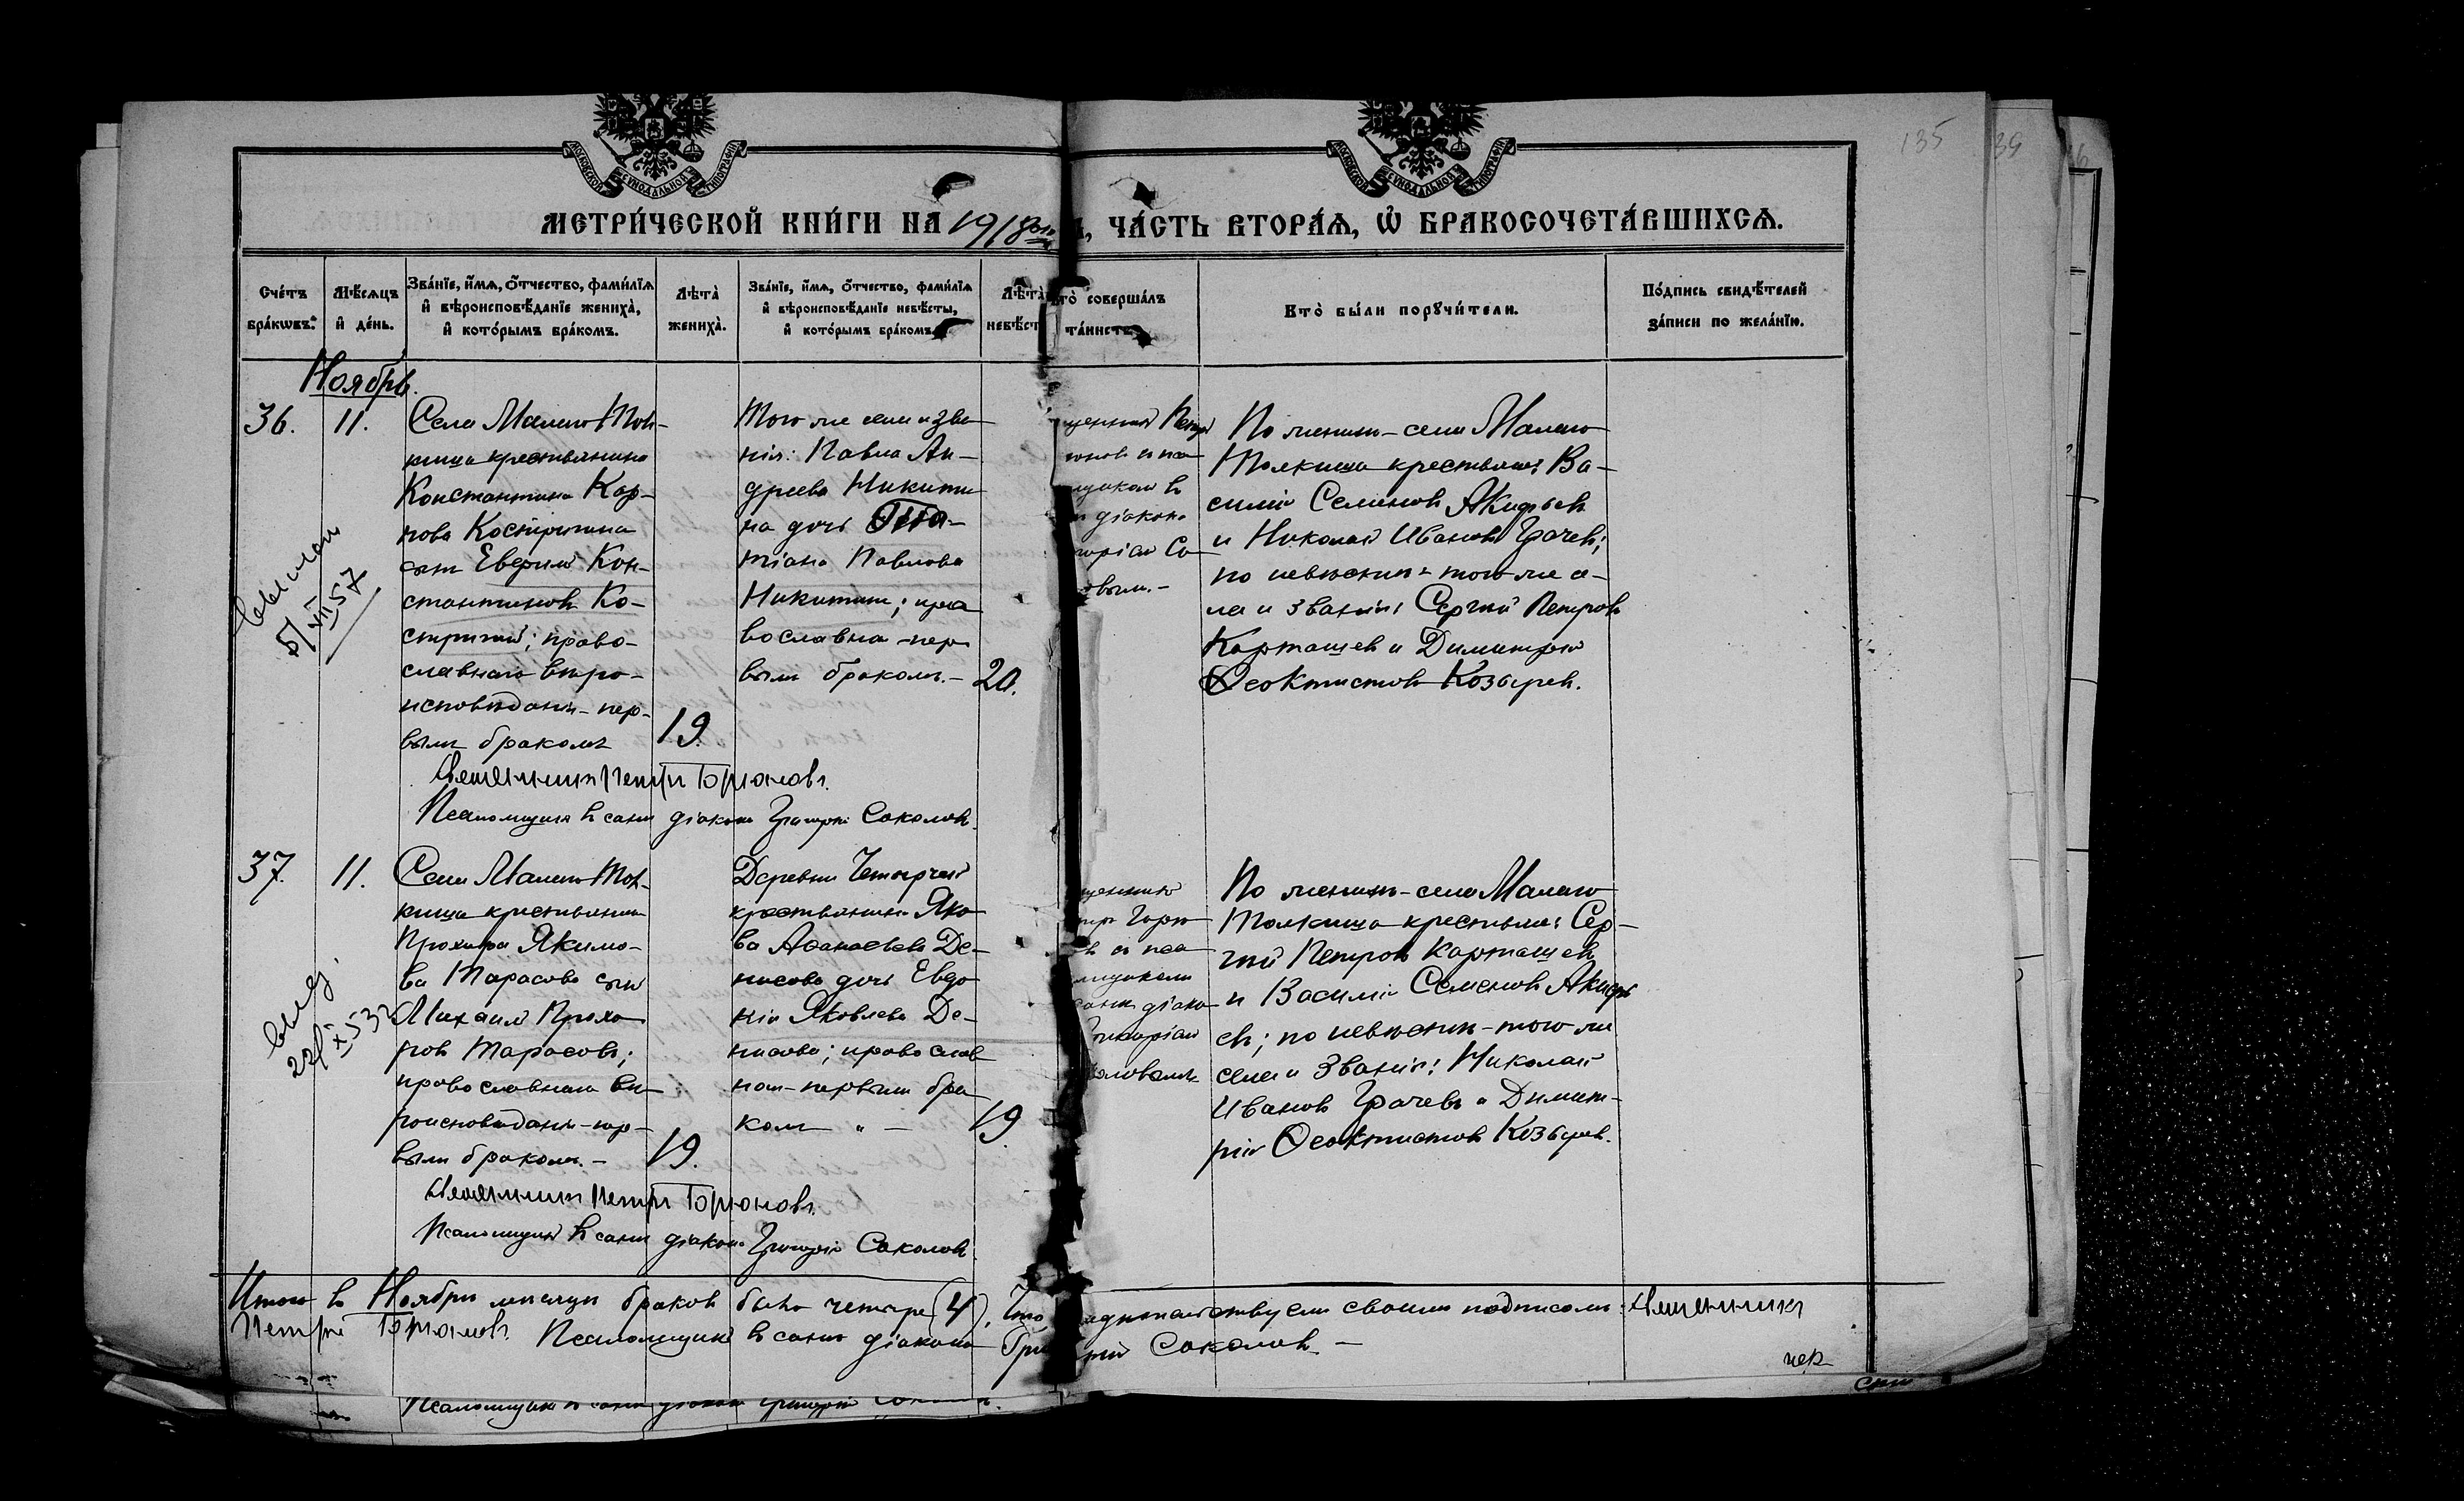 135
МОСКОВСКОЙ СѴНОДАЛЬНОЙ ТИПОГРАФІИ
МОСКОВСКОЙ СѴНОДАЛЬНОЙ ТИПОГРАФІИ
МЕТРИ́ЧЕСКОЙ КНИ́ГИ НА 1918 ЧА́СТЬ ВТОРА́Ѧ, Ѽ БРАКОСОЧЕТА́ВШИХСѦ.
Сче́тъ бра́кѡвъ.
Мѣ́сѧцъ и҆ де́нь.
Зва́нїе, и҆́мѧ, ѻ҆́тчество, фами́лїѧ
и҆ вѣроисповѣ́данїе жениха̀,
и҆ кото́рымъ бра́комъ.
Лѣта̀ жениха̀.
Зва́нїе, и҆́мѧ, ѻ҆́тчество, фами́лїѧ
и҆ вѣроисповѣ́данїе невѣ́сты,
и҆ кото́рымъ бра́комъ
Лѣта̀ невѣ́ст
то̀ соверша́лъ
та́инств
Кто̀ бы́ли порꙋчи́тели.
По́дпись свидѣ́телей
за́писи по жела́нїю.
Ноябрь.
36.
11.
Села Малаго Тол-
киша крестьянина
Константина Кар-
пова Костригина
сын Евфимій Кон-
стантиновъ Ко-
стригин; право-
славнаго вѣро-
исповѣданія - пер-
вымъ бракомъ
19.
Того же села и зва-
нія: Павла Ан-
дреева Никити
на дочь Та-
тіана Павлова
Никитина; пра
вославна - пер
вымъ бракомъ. -
20.
щенникъ Петр
юновъ съ пса
мщиком в
діакона
горіем Со
овым. -
По женихѣ - села Малаго
Толкиша крестьяне: Ва-
силій Семеновъ Акифьев
и Николай Ивановъ Грачевъ;
по невѣстѣ - того же се-
ла и званія: Сергій Петровъ
Карташев и Димитрій
Ѳеоктистовъ Козырев.
Священникъ Петръ Горюновъ.
Псаломщикъ в санѣ діакона Григорій Соколовъ.
выслан
5/VII 57
37.
11.
Села Малаго Тол-
киша крестьянина
Прохора Якимо-
ва Тарасова сын
Михаилъ Прохо
ров Тарасовъ;
православнаго вѣ-
роисповѣданія - пер-
вымъ бракомъ. -
19.
Деревни Четырчей
крестьянина Яко
ва Афанасьева Де-
нисова дочь Евдо
кія Яковлева Де-
нисова; православ
ная - первымъ бра
комъ " -
19.
щенникъ
тръ Горю
въ съ пса
мщиком
санѣ діако
Григоріем
коловымъ
По женихѣ - села Малаго
Толкиша крестьяне: Сер-
гій Петровъ Карташев
и Василій Семеновъ Акифь
ев; по невѣстѣ - того же
села и званія: Николай
Ивановъ Грачевъ и Димит-
рій Ѳеоктистовъ Козырев.
Священникъ Петръ Горюновъ.
Псаломщикъ в санѣ діакона Григорій Соколовъ.
22/X 53
Итого в Ноябрѣ мѣсяцѣ браков было четыре (4), Что свидѣтельствуем своими подписями: Священникъ
Петръ Горюновъ. Псаломщикъ в санѣ діакона Григорій Соколовъ. -
Псаломщикъ в санѣ діакона Григорій